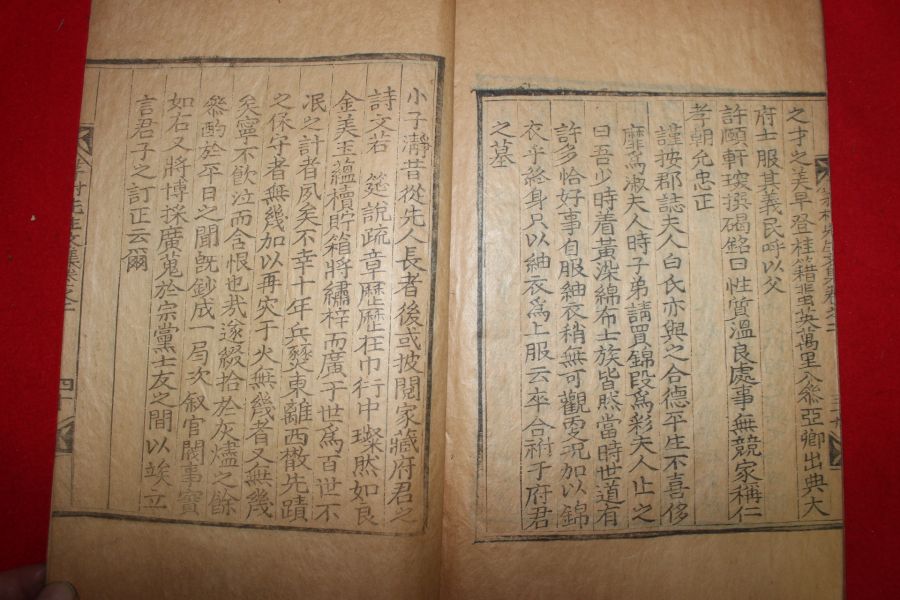 之才之美早登桂籍蜚英萬里入參亞卿出典大
府士服其義民呼以父
許頤軒璞撰碣銘曰性質溫良處事無競家稱仁
孝朝允忠正
謹按郡誌夫人白氏亦與之合德平生不喜侈
靡爲淑夫人時子弟請買錦段爲彩夫人止之
曰吾少時着黃染綿布士族皆然當時世道有
許多恰好事自服紬衣稍無可觀更况加以錦
衣乎終身只以紬衣爲上服云卒合祔于府君
之墓
小子瀞昔從先人長者後或披閱家藏府君之
詩文若 筵說疏章歷歷在巾行中璨然如良
金美玉蘊櫝貯箱將繡梓而廣于世爲百世不
泯之計者夙矣不幸十年兵燹東離西散先蹟
之保守者無幾加以再灾于火無幾者又無幾
矣寧不飮泣而含恨也哉遂綴拾於灰燼之餘
參酌於平日之聞旣鈔成一局次叙官閥事實
如右又將博採廣蒐於宗黨士友之間以竢立
言君子之訂正云爾